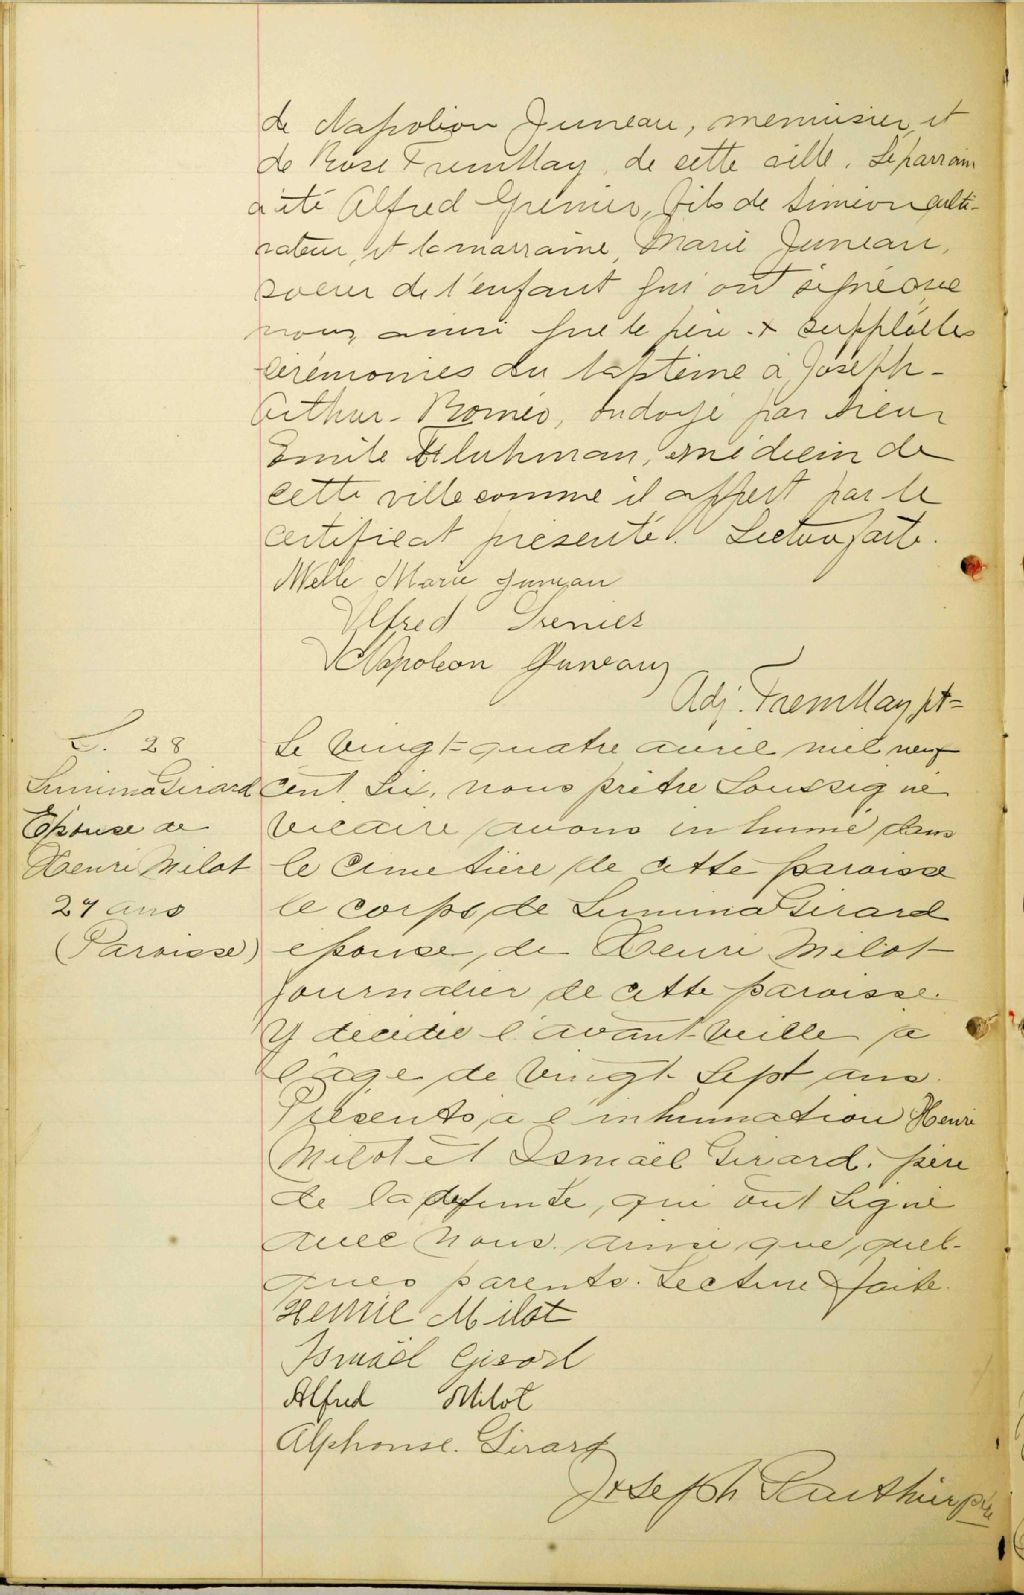 de Napoléon Juneau, menuisier, et
de Rose Tremblay, de cette ville. Le parrain
a été Alfred Grenier, fils de Siméon culti-
vateur, et la marraine, Marie Juneau,
soeur de l'enfant qui ont signé avec
nous, ainsi que le père. + Suppléé les
cérémonies du baptême à Joseph-
Arthur-Roméo, ondoyé par Sieur
Emile médecin de
cette ville comme il appert par le
certificat présenté. Lecture faite.
Melle Marie Juneau
Alfred Grenier
Napoleon Juneau
Adj. Tremblay, pt=
S. 28
Lumina Girard
Epouse de
Henri Milot
27 ans
(Paroisse)
Le vingt-quatre avril mil neuf
cent six, nous prêtre soussigné
vicaire avons inhumé dans
le cimetière de cette paroisse
le corps de Lumina Girard
épouse de Henri Milot
journalier de cette paroisse.
Y décédée l'avant-veille à
l'âge de vingt-sept ans.
Présents à l'inhumation Henri
Milot et Ismaël Girard, père
de la defunte, qui ont signé
avec nous ainsi que quel-
ques parents. Lecture faite.
Henrie Milot
Ismaël Girard
Alfred Milot
Alphonse. Girard
Joseph ptre